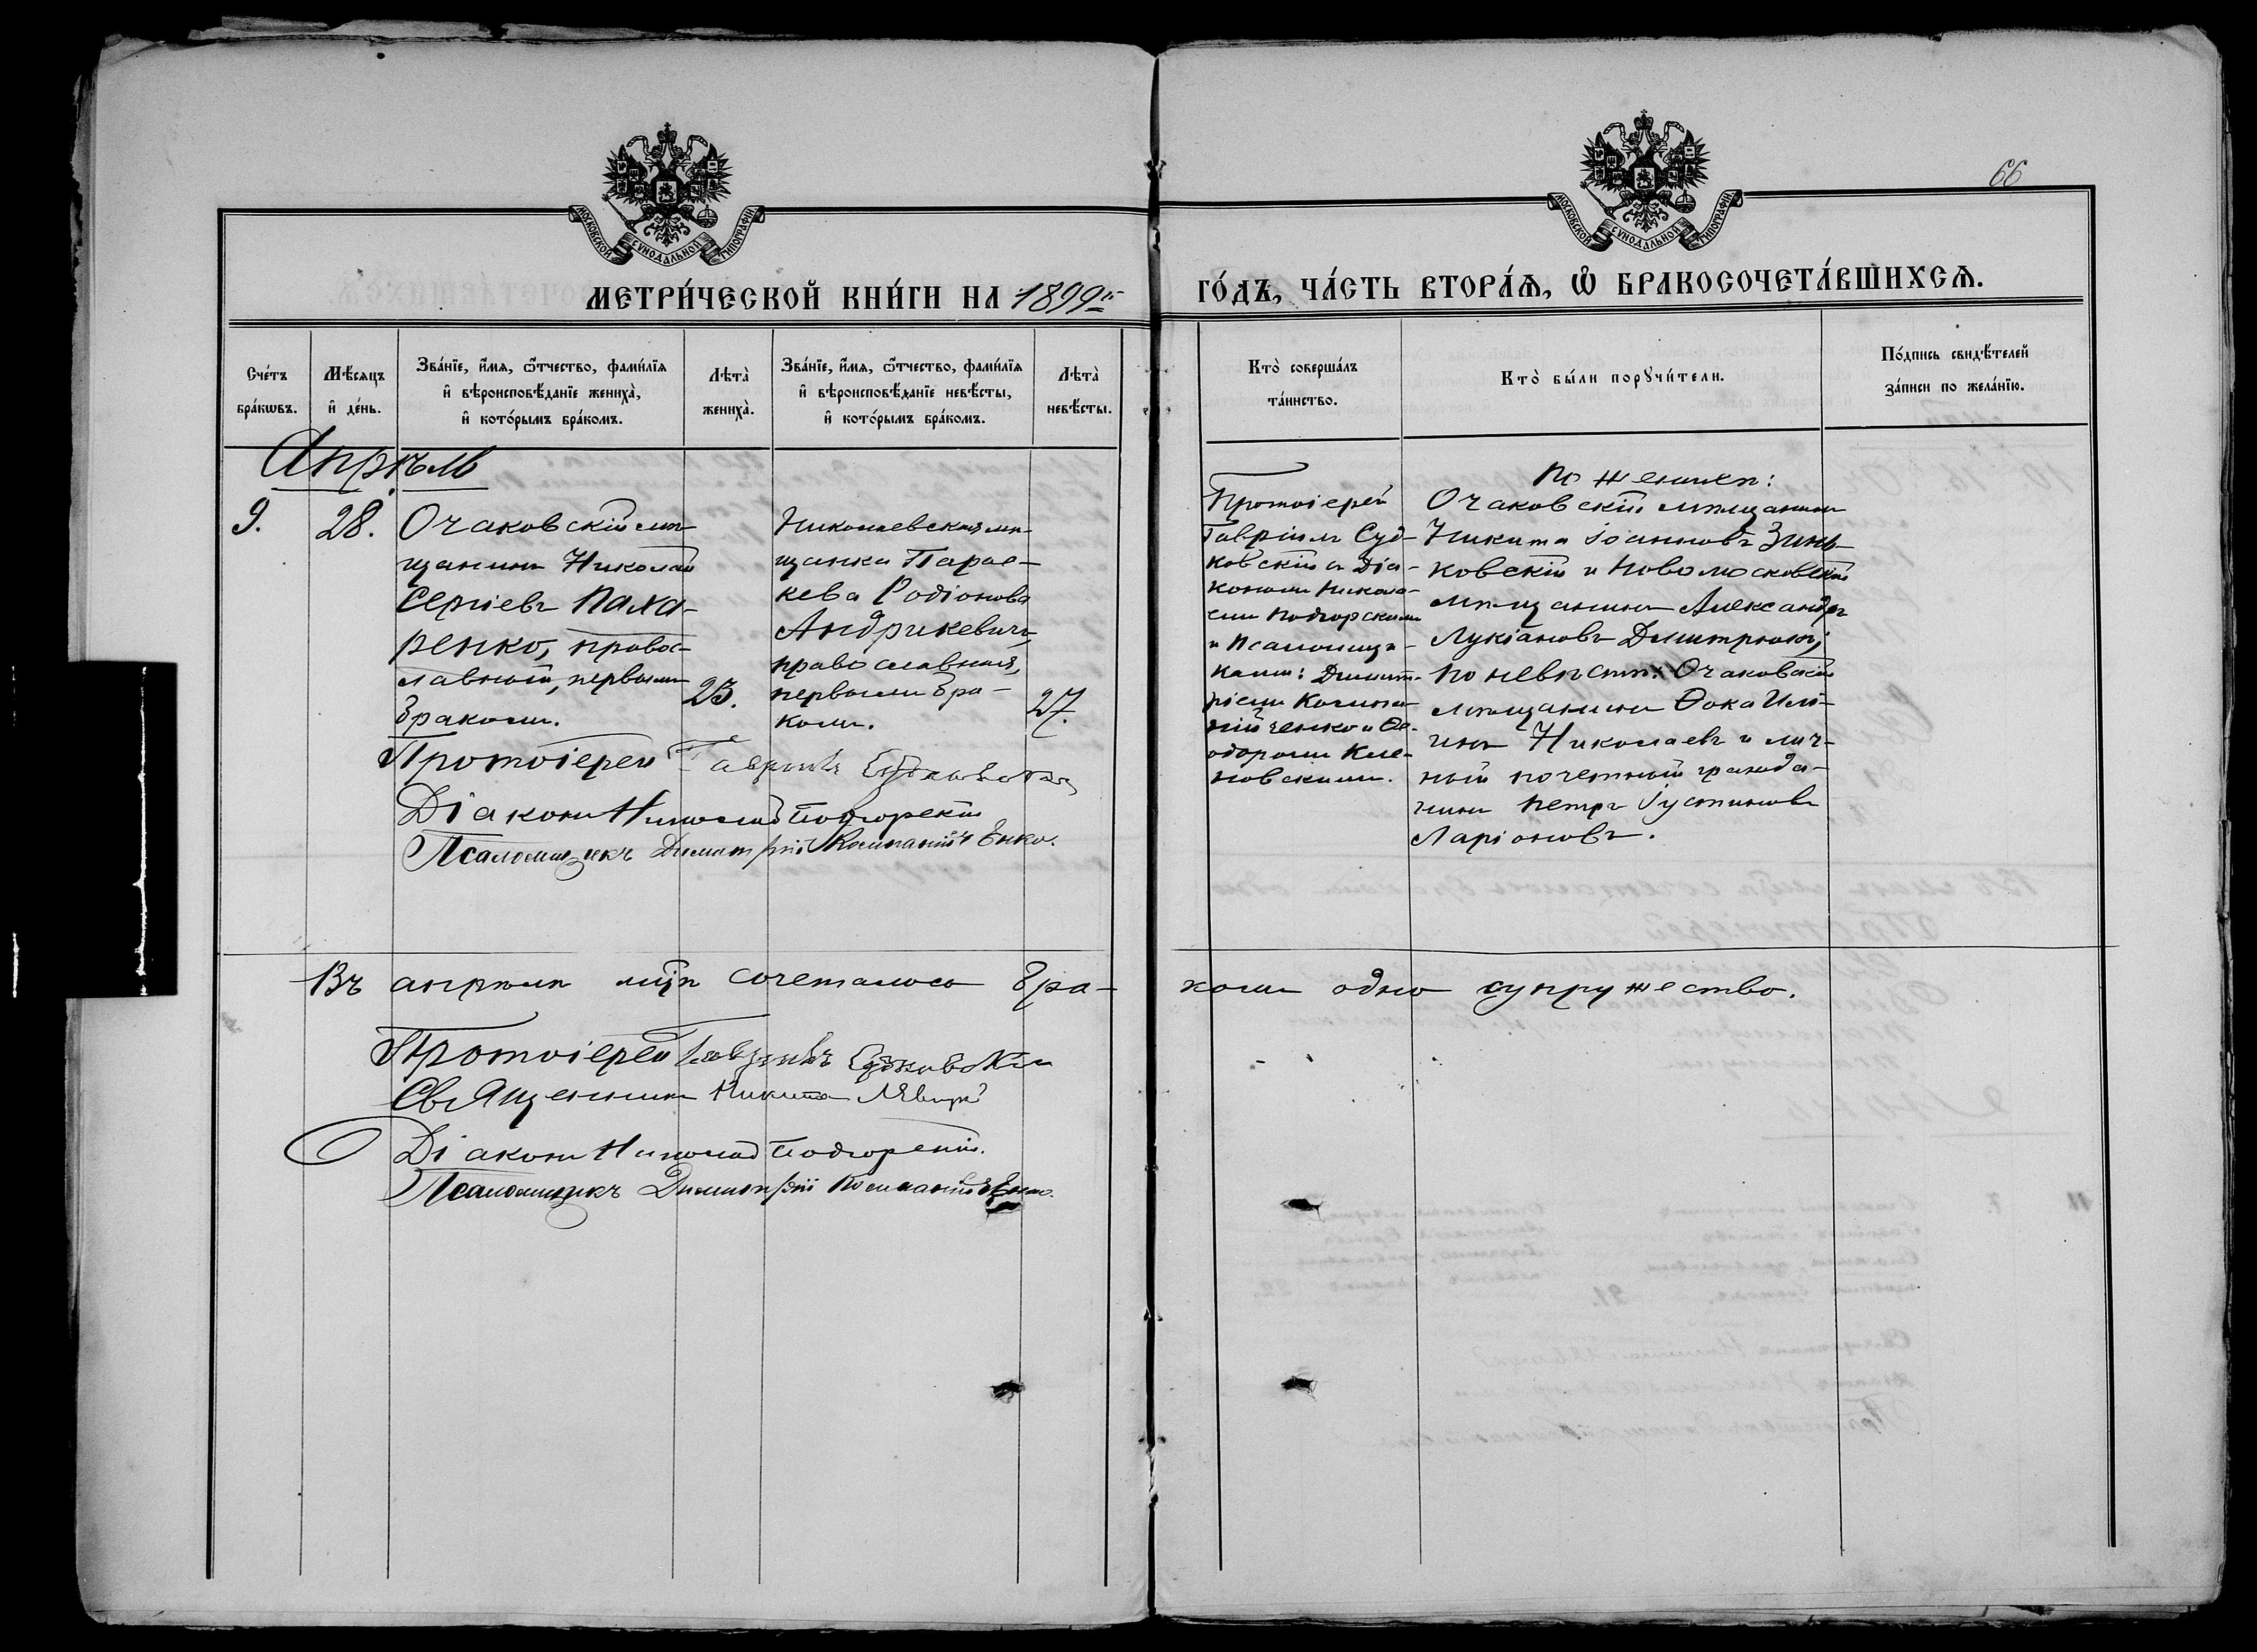 66
МОСКОВСКОЙ СѴНОДАЛЬНОЙ ТИПОГРАФІИ
МОСКОВСКОЙ СѴНОДАЛЬНОЙ ТИПОГРАФІИ
МЕТРИ́ЧЕСКОЙ КНИ́ГИ НА 1899й ГО́ДЪ, ЧА́СТЬ ВТОРА́Ѧ, Ѡ҆ БРАКОСОЧЕТА́ВШИХСѦ.
Сче́тъ
бра́кѡвъ.
Мѣ́сяцъ
и҆ де́нь.
Зва́нїе, и҆́мѧ, ѻ҆́тчество, фамі́лїѧ
и҆ вѣроисповѣ́данїе жениха̀,
и҆ кото́рымъ бра́комъ.
Лѣта̀
жениха̀.
Зва́нїе, и҆́мѧ, ѻ҆́тчество, фамі́лїѧ
и҆ вѣроисповѣ́данїе невѣ́сты,
и҆ кото́рымъ бра́комъ.
Лѣта̀
невѣ́сты.
Кто̀ соверша́лъ
та́инство.
Кто̀ бы́ли порꙋчи́тели.
По́дпись свидѣ́телей
за́писи по жела́нїю.
Апрѣль
9.
28.
Очаковскій мѣ-
щанинъ Николай
Сергіевъ Паха-
ренко, правос-
лавной, первымъ
бракомъ.
23.
Николаевская мѣ-
щанка Парас-
кева Родіонова
Андрикевичъ,
православная,
первымъ бра-
комъ.
27.
Протоіерей
Гавріилъ Суд-
ковскій съ Діа-
кономъ Никола-
емъ Подгорскимъ
и Псаломщи-
ками: Димит-
ріемъ Компа-
нійченко и Ѳе-
одоромъ Кле-
новскимъ.
По женихѣ:
Очаковскій мѣщанинъ
Никита Іоанновъ Зинь-
ковскій и Новомосковскій
мѣщанинъ Александръ
Лукіановъ Димитрюкъ;
по невѣстѣ: Очаковскій
мѣщанинъ Ѳока Иль-
инъ Николаевъ и лич-
ный почетный гражда-
нинъ Петръ Іустиновъ
Ларіоновъ.
Протоіерей Гавріилъ Судковскій
Діаконъ Николай Подгорскій
Псаломщикъ Димитрій Компанійченко.
Въ апрѣлѣ мцѣ сочеталось бра-
комъ одно супружество.
Протоіерей Гавріилъ Судковскій
Священникъ Никита Левицкій
Діаконъ Николай Подгорскій.
Псаломщикъ Димитрій Компанійченко.